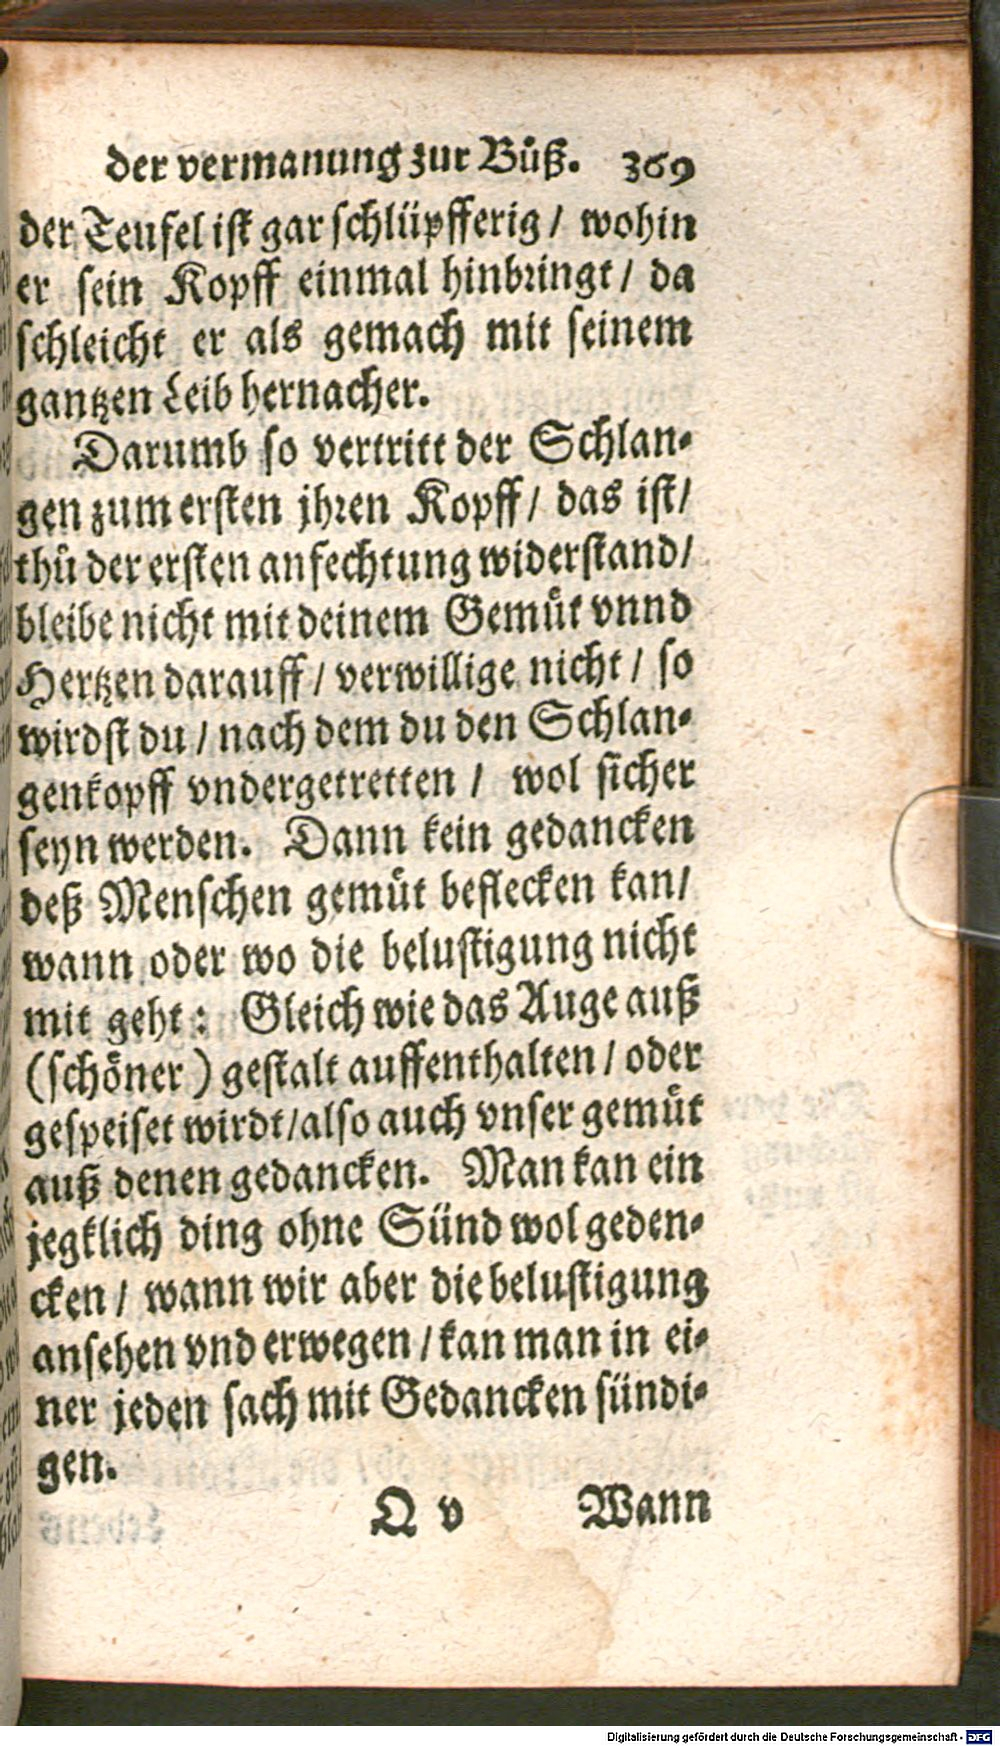 der vermanung zur Bůß. 369
der Teufel ist gar schlüpfferig / wohin
er sein Kopff einmal hinbringt / da
schleicht er als gemach mit seinem
gantzen Leib hernacher.
Darumb so vertritt der Schlan-
gen zum ersten jhren Kopff / das ist /
thů der ersten anfechtung widerstand /
bleibe nicht mit deinem Gemůt vnnd
Hertzen darauff / verwillige nicht / so
wirdst du / nach dem du den Schlan-
genkopff vndergetretten / wol sicher
seyn werden. Dann kein gedancken
deß Menschen gemůt beflecken kan /
wann oder wo die belustigung nicht
mit geht : Gleich wie das Auge auß
(schöner) gestalt auffenthalten / oder
gespeiset wirdt / also auch vnser gemůt
auß denen gedancken. Man kan ein
jegklich ding ohne Sünd wol geden-
cken / wann wir aber die belustigung
ansehen vnd erwegen / kan man in ei-
ner jeden sach mit Gedancken sündi-
gen.
Q v Wann
Digitalisierung gefördert durch die Deutsche Forschungsgemeinschaft - DFG